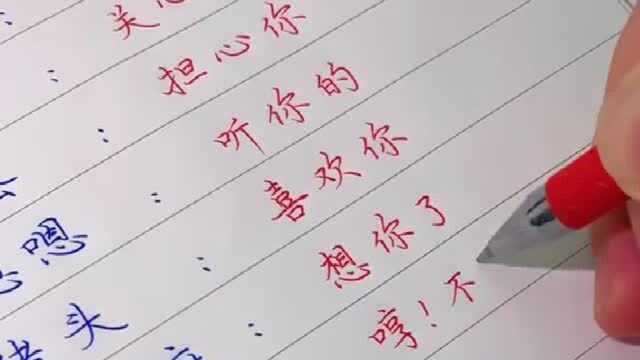 ：关心
：担心你
嗯：听你的
头：喜欢你
：想你了
哼！不